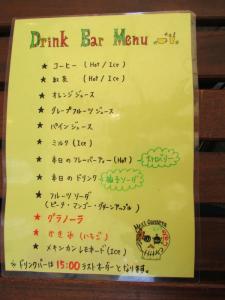 Drink Bar Menu
★ コーヒー (Hot / Ice)
★ 紅茶 (Hot / Ice)
★ オレンジジュース
★ グレープフルーツジュース
★ パインジュース
★ ミルク (Ice)
★ 本日のフレーバーティー (Hot) ストロベリー
★ 本日のドリンク 柚子ソーダ
★ フルーツソーダ
(ピーチ・マンゴー・グリーンアップル)
★ グラノーラ
★ かき氷 (いちご)
★ メキシカンレモネード (Ice)
※ ドリンクバーは 15:00 ラストオーダーとなります。